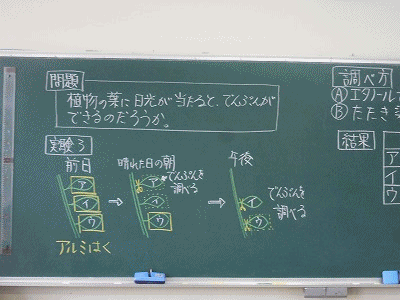 問題
植物の葉に日光が当たると、でんぷんが
できるのだろうか。
実験3
前日
ア
イ
ウ
アルミはく
晴れた日の朝
ア
イ
ウ
でんぷんを
調べる
午後
イ
ウ
でんぷんを
調べる
調べ方
Ⓐエタノール
Ⓑたたき
結果
ア
イ
ウ